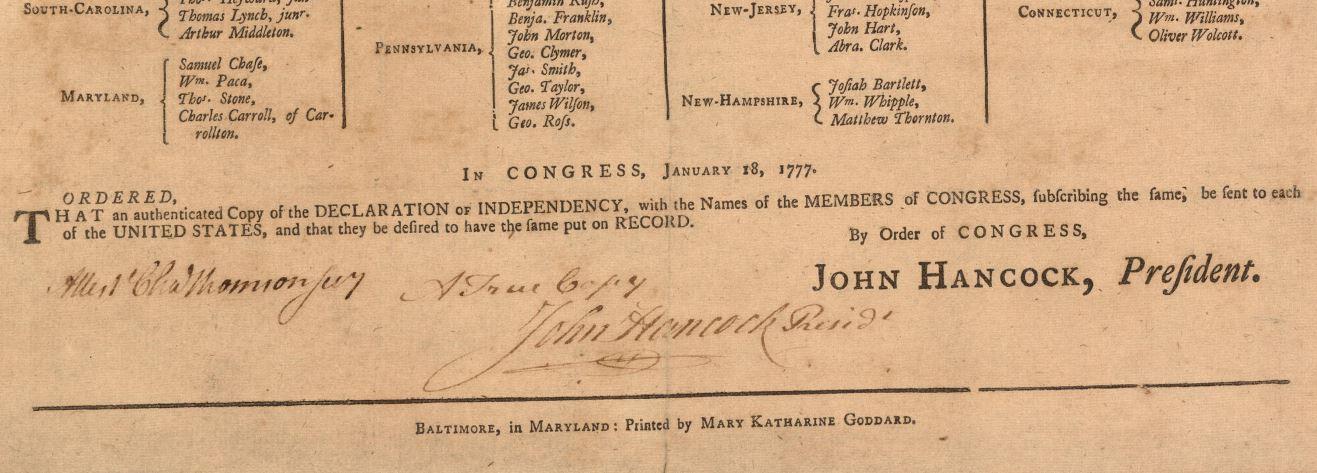 SOUTH-CAROLINA,
Thomas Lynch, junr.
Arthur Middleton.
MARYLAND,
Samuel Chaſe,
Wm. Paca,
Thos. Stone,
Charles Carroll, of Car-
rollton.
PENNSYLVANIA,
Benjamin Ruſh,
Benja. Franklin,
John Morton,
Geo. Clymer,
Jas. Smith,
Geo. Taylor,
James Wilſon,
Geo. Roſs.
NEW-JERSEY,
Fras. Hopkinſon,
John Hart,
Abra. Clark.
NEW-HAMPSHIRE,
Joſiah Bartlett,
Wm. Whipple,
Matthew Thornton.
CONNECTICUT,
Saml. Huntington,
Wm. Williams,
Oliver Wolcott.
IN CONGRESS, JANUARY 18, 1777.
ORDERED,
THAT an authenticated Copy of the DECLARATION OF INDEPENDENCY, with the Names of the MEMBERS of CONGRESS, ſubſcribing the ſame, be ſent to each
of the UNITED STATES, and that they be deſired to have the ſame put on RECORD.
By Order of CONGRESS,
JOHN HANCOCK, Preſident.
Attest Chas Thomson secy A True Copy
John Hancock Presidt
BALTIMORE, in MARYLAND: Printed by MARY KATHARINE GODDARD.